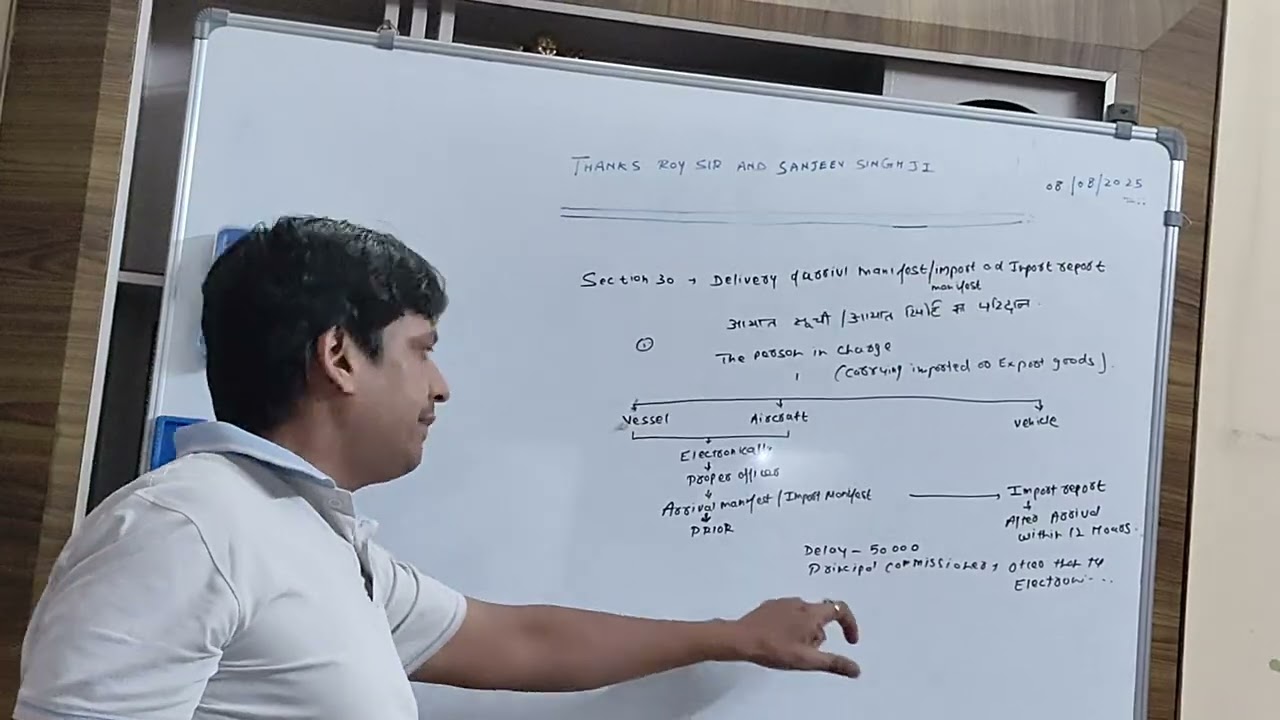 THANKS ROY SIR AND SANJEEV SINGH JI
08/08/2025
Section 30 → Delivery of arrivl manifest/import manifest od Import report
आयात सूची / आयात रिपोर्ट का परिदान.
① The person in charge
(carrying imported or Export goods).
Vessel Aircraft Vehicle
Electronically
Proper officer
Arrival manifest / Import Manifest → Import report
PRIOR
After Arrival
within 12 Hours.
Delay - 50000
Principal commissioner, other than
Electroni...